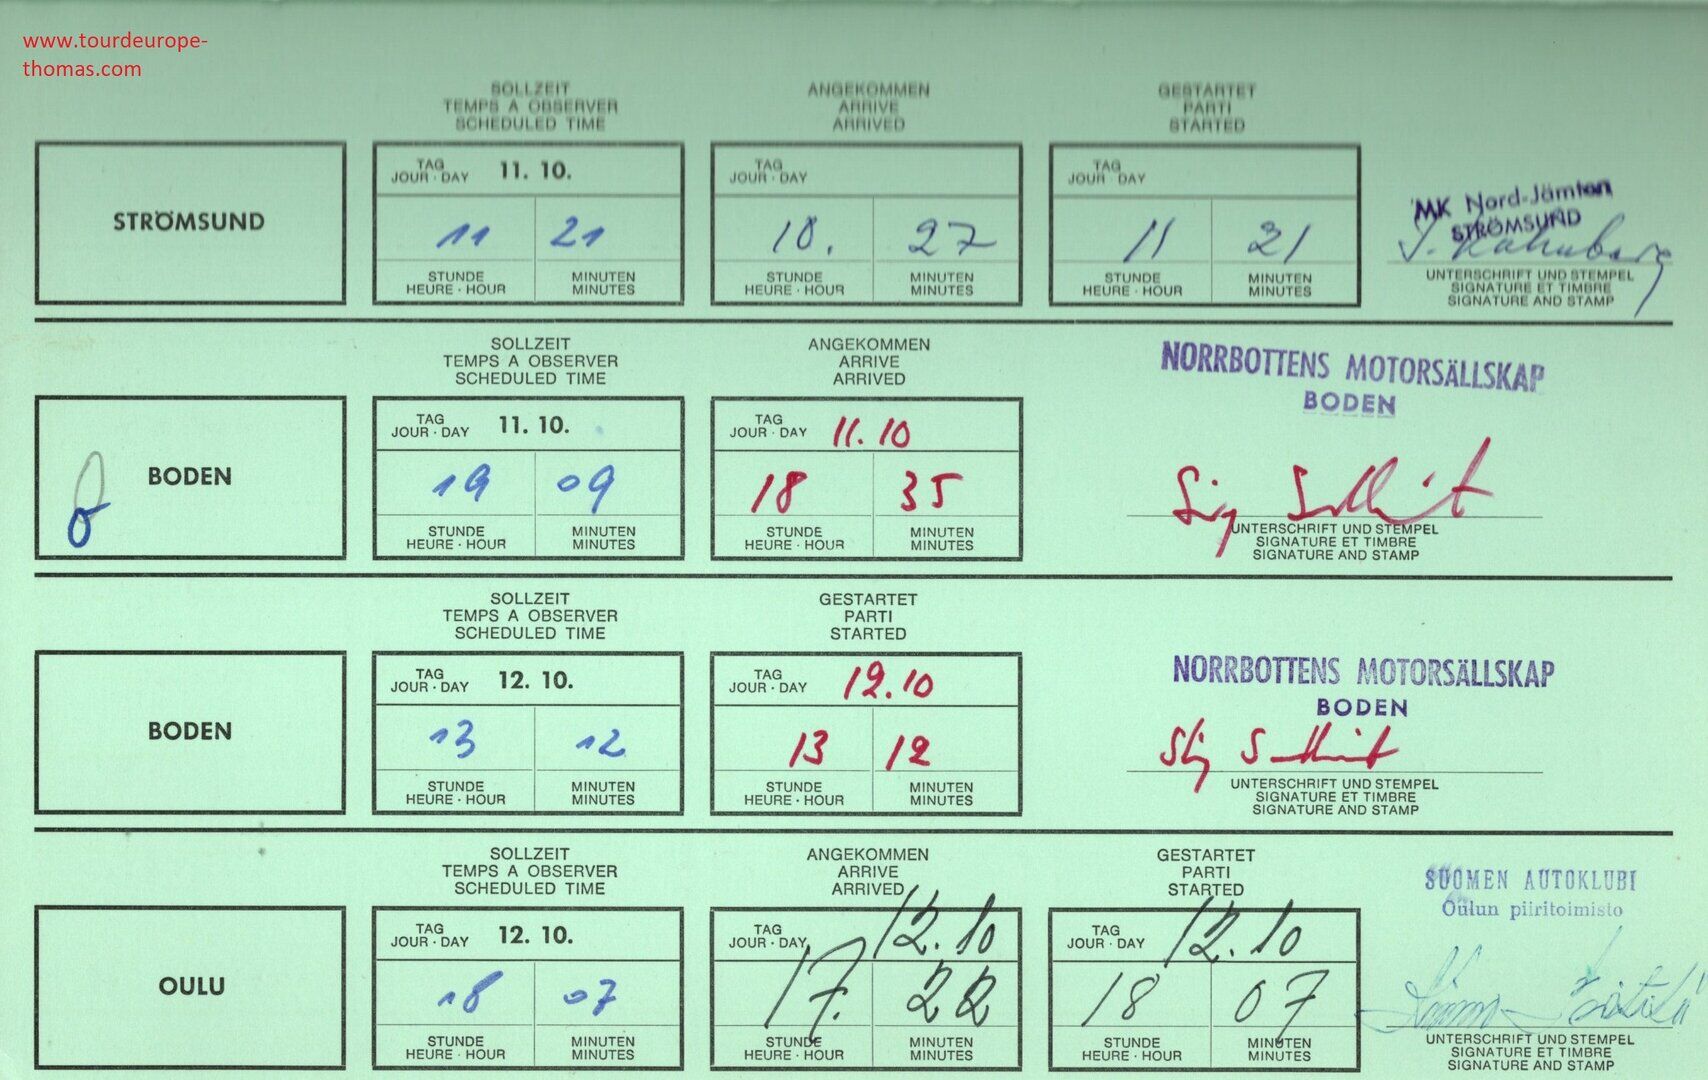 www.tourdeurope-
thomas.com
SOLLZEIT ANGEKOMMEN GESTARTET
TEMPS A OBSERVER ARRIVE PARTI
SCHEDULED TIME ARRIVED STARTED
STRÖMSUND
TAG
JOUR · DAY 11. 10.
TAG
JOUR · DAY
TAG
JOUR · DAY
11 21 10. 27 11 21
STUNDE MINUTEN STUNDE MINUTEN STUNDE MINUTEN
HEURE · HOUR MINUTES HEURE · HOUR MINUTES HEURE · HOUR MINUTES
MK Nord-Jämten
STRÖMSUND
UNTERSCHRIFT UND STEMPEL
SIGNATURE ET TIMBRE
SIGNATURE AND STAMP
SOLLZEIT ANGEKOMMEN
TEMPS A OBSERVER ARRIVE
SCHEDULED TIME ARRIVED
BODEN
TAG
JOUR · DAY 11. 10.
TAG
JOUR · DAY 11. 10
19 09 18 35
STUNDE MINUTEN STUNDE MINUTEN
HEURE · HOUR MINUTES HEURE · HOUR MINUTES
NORRBOTTENS MOTORSÄLLSKAP
BODEN
UNTERSCHRIFT UND STEMPEL
SIGNATURE ET TIMBRE
SIGNATURE AND STAMP
SOLLZEIT GESTARTET
TEMPS A OBSERVER PARTI
SCHEDULED TIME STARTED
BODEN
TAG
JOUR · DAY 12. 10.
TAG
JOUR · DAY 12.10
13 12 13 12
STUNDE MINUTEN STUNDE MINUTEN
HEURE · HOUR MINUTES HEURE · HOUR MINUTES
NORRBOTTENS MOTORSÄLLSKAP
BODEN
UNTERSCHRIFT UND STEMPEL
SIGNATURE ET TIMBRE
SIGNATURE AND STAMP
SOLLZEIT ANGEKOMMEN GESTARTET
TEMPS A OBSERVER ARRIVE PARTI
SCHEDULED TIME ARRIVED STARTED
OULU
TAG
JOUR · DAY 12. 10.
TAG
JOUR · DAY 12.10
TAG
JOUR · DAY 12.10
18 07 17. 22 18 07
STUNDE MINUTEN STUNDE MINUTEN STUNDE MINUTEN
HEURE · HOUR MINUTES HEURE · HOUR MINUTES HEURE · HOUR MINUTES
SUOMEN AUTOKLUBI
Oulun piiritoimisto
UNTERSCHRIFT UND STEMPEL
SIGNATURE ET TIMBRE
SIGNATURE AND STAMP